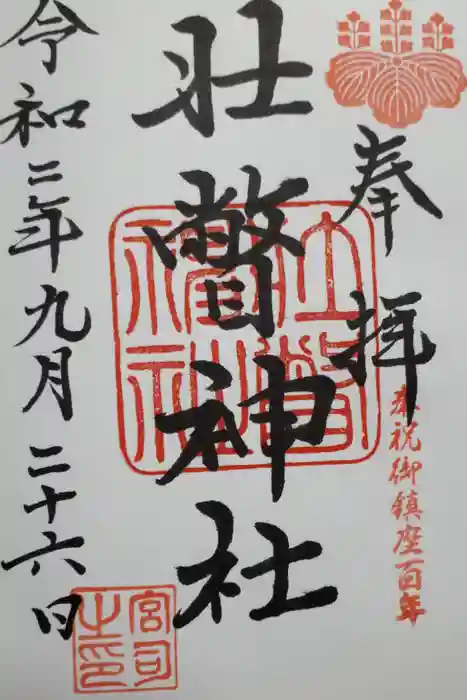 奉拝
恭祝御鎮座百年
壮瞥神社
令和三年九月二十六日
壮瞥神社
宮司之印